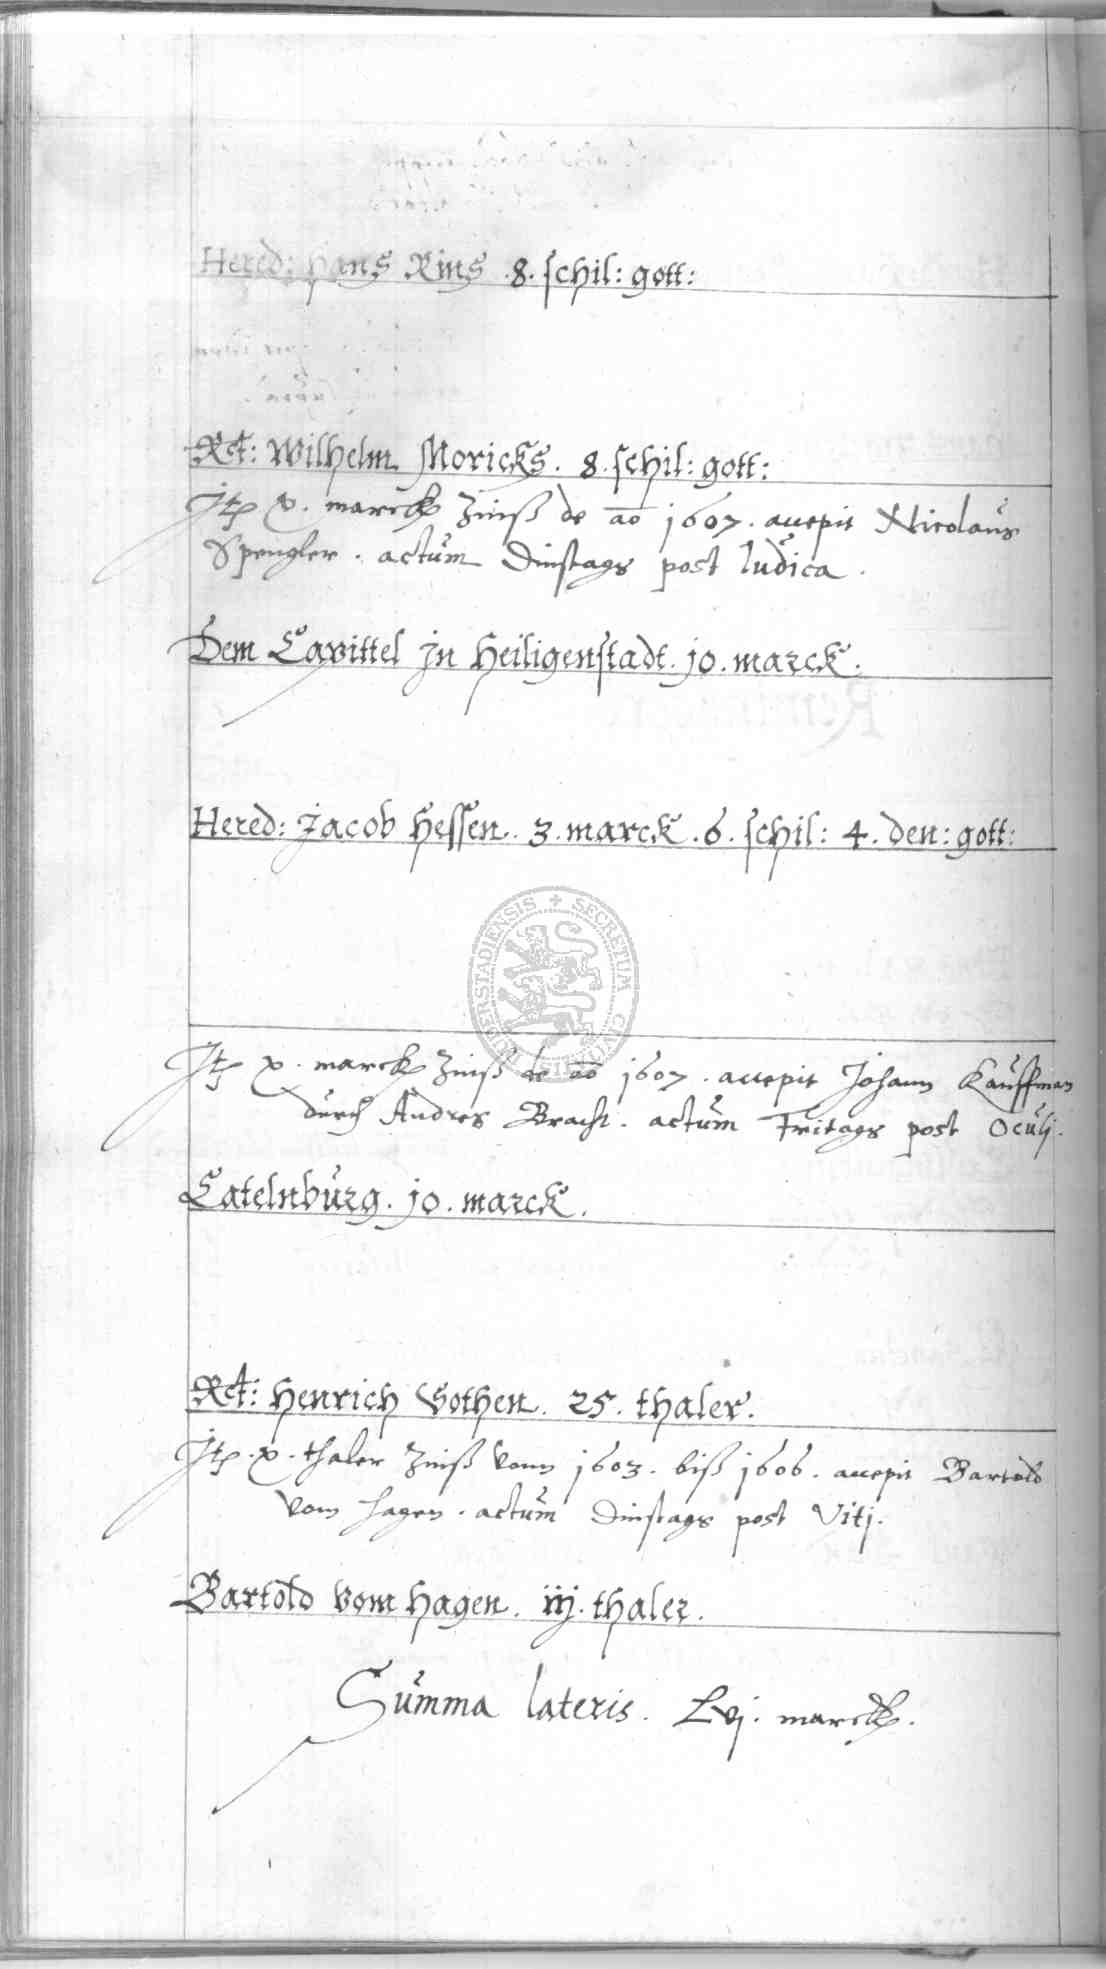 Hered: Hans Rins .8. schil: gott:
Rct: Wilhelm Moricks. 8. schil: gott:
Jtē v. marck Zinß de ao 1607. accepit Nicolaus
Spengler. actum Dinstags post Iudica.
Dem Capittel jn Heiligenstadt. jo. marck.
Hered: Jacob Hessen. 3. marck. 6. schil: 4. den: gott:
SECRETUM CIVITATIS DUDERSTADIENSIS
Jtē x. marck Zinß de ao 1607. accepit Johann Kauffman
durch Andres Bracht. actum Freitags post Oculj.
Catelnburg. jo. marck.
Rct: Henrich Gothen. 25. thaler.
Jtē. x. thaler Zinß vonn 1603. biß 1606. accepit Bartold
vom Hagen. actum Dinstags post Vitj.
Bartold vom Hagen. iij. thaler.
Summa lateris. Lvj. marck.